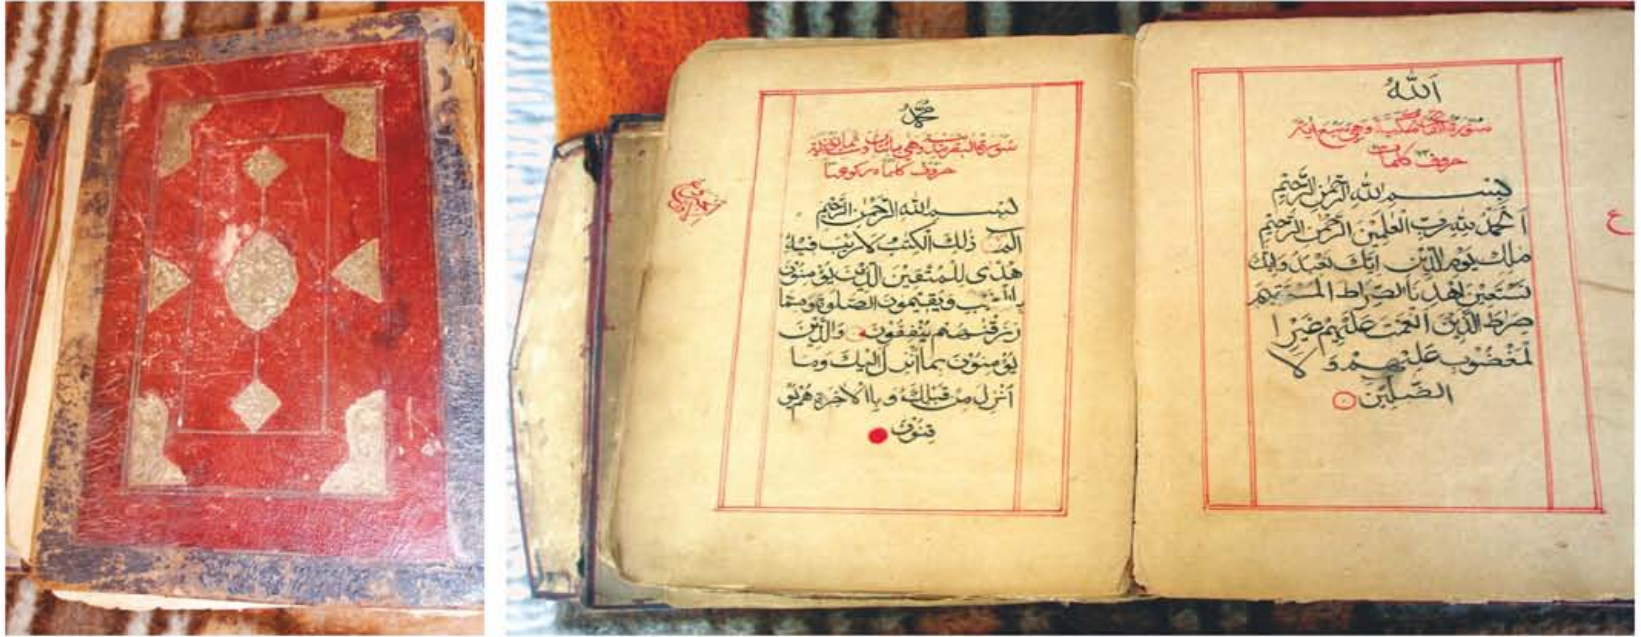 اَللّٰهُ
سورة الفاتحة مكية وهي سبع اية
حروف كلمات
بِسْــمِ اللهِ الرَّحْمٰنِ الرَّحِيْمِ
اَلْحَمْدُ لِلّٰهِ رَبِّ الْعٰلَمِيْنَ الرَّحْمٰنِ الرَّحِيْمِ
مٰلِكِ يَوْمِ الدِّيْنِ اِيَّاكَ نَعْبُدُ وَاِيَّكَ
نَسْتَعِيْنُ اِهْدِنَا الصِّرَاطَ الْمُسْتَقِيْمَ
صِرَاطَ الَّذِيْنَ اَنْعَمْتَ عَلَيْهِمْ غَيْرِ ا
لْمَغْضُوْبِ عَلَيْهِمْ وَ لَا
الضَّالِّيْنَ
ع
مُحَمَّد
سورة البقرة وهي مائتان وست ثمانون اية
حروف كلماة ركوعها
بِسْــمِ اللهِ الرَّحْمٰنِ الرَّحِيْمِ
الم ذٰلِكَ الْكِتٰبُ لَا رَيْبَ فِيْهِ
هُدًى لِلْمُتَّقِيْنَ الَّذِيْنَ يُؤْمِنُوْنَ
بِالْغَيْبِ وَيُقِيْمُوْنَ الصَّلٰوةَ وَمِمَّا
رَزَقْنٰهُمْ يُنْفِقُوْنَ وَالَّذِيْنَ
يُؤْمِنُوْنَ بِمَا اُنْزِلَ اِلَيْكَ وَمَا
اُنْزِلَ مِنْ قَبْلِكَ وَ بِاالْاٰخِرَةِ هُمْ يُوْ
قِنُوْنَ